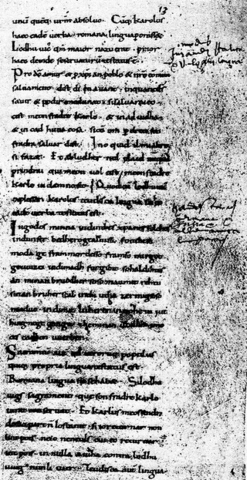 13
unū quēq; urm absoluo. Cūq; karolus
haec eadē uerba romana lingua perorasset
Lodhuuic qm̄ maior natu erat prior
haec deinde se seruaturū testatus est
Pro dō amur & p xpian poblo & nro cōmun
saluament. dist di in auant. in quant ds
sauir & podir me dunat. si saluarai eo.
cist meon fradre karlo. & in adiudha
& in cad huna cosa. sicū om p dreit son
fradra saluar dist. Ino quid il mi altre
si faz&. Et ab ludher nul plaid nūquā
prindrai qui meon uol cist meon fradre
karle in damno sit. Quod cū lodhuuic
explesset karolus teudisca lingua sic hec
eadē uerba testatus est
In godes minna indinthes xpanes folches
indunser bedhero gehaltnissi. fonthese
moda ge frammordesso framso mirgot
geuuizci indimahd furgibit sohaldihtes
an minan bruodher soso man mit rehtu
sinan bruher scal inthi utha zermigso
maduo. indimit luheren
uuillon
uuerhen.
Sacramentū aut qd utrorū populus
quiq; propria lingua testatus est.
Romana lingua sic se habet. Silodhu
uigs sagrament. que son fradre karlo
iurat conseruat. Et karlus meos sendra
de suo part n lostanit. si ioreturnar non
lint pois. neio neneuls cui eo returnar
int pois. in nulla aiudha contra lodhu
uuig nun li iuer. Teudisca aut lingua